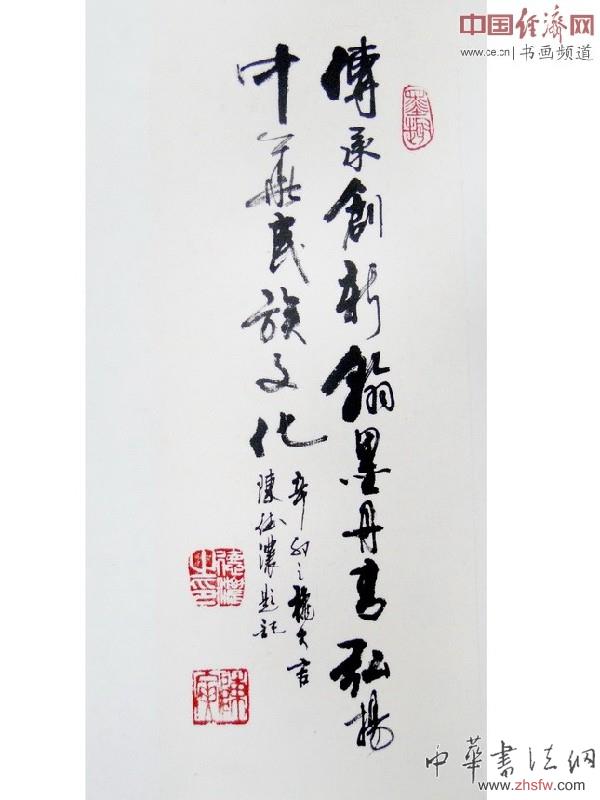 中国经济网
www.ce.cn 书画频道
傳承創新翰墨丹青弘揚
中華民族文化
辛卯之龝大吉
陳德濃題記
中华书法网
www.zhsfw.com